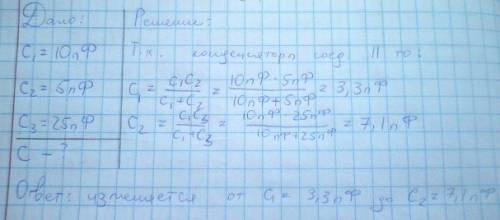 Дано:
C₁ = 10пФ
C₂ = 5пФ
C₃ = 25пФ
C - ?
Решение:
Т.к. конденсаторы соед. II то:
C₁ = C₁C₂ / C₁+C₂ = 10пФ · 5пФ / 10пФ+5пФ = 3,3пФ
C₂ = C₁C₃ / C₁+C₃ = 10пФ · 25пФ / 10пФ+25пФ = 7,1пФ
Ответ: изменяется от C₁ = 3,3пФ до C₂ = 7,1пФ